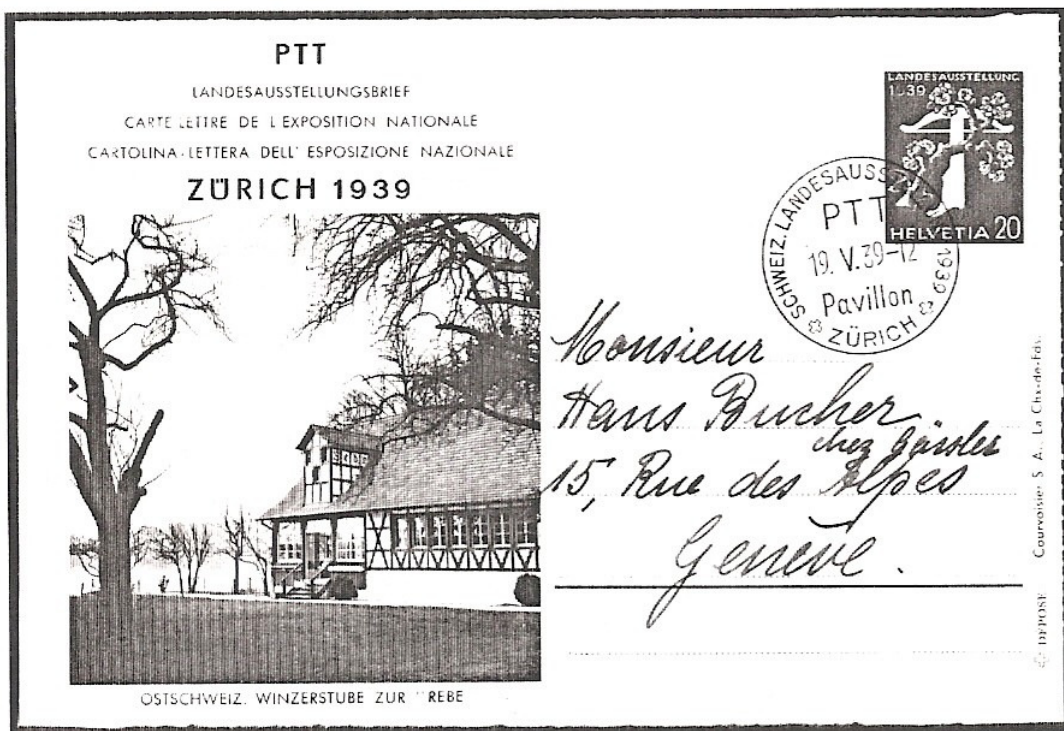 PTT
LANDESAUSSTELLUNGSBRIEF
CARTE LETTRE DE L'EXPOSITION NATIONALE
CARTOLINA-LETTERA DELL' ESPOSIZIONE NAZIONALE
ZÜRICH 1939
OSTSCHWEIZ. WINZERSTUBE ZUR "REBE
LANDESAUSSTELLUNG
1939
HELVETIA 20
SCHWEIZ. LANDESAUSS 1939
PTT
19. V. 39-12
Pavillon
ZÜRICH
Monsieur
Hans Bucher
chez Gässler
15, Rue des Alpes
Genève.
DEPOSE Courvoisier S. A., La Chx-de-Fds.